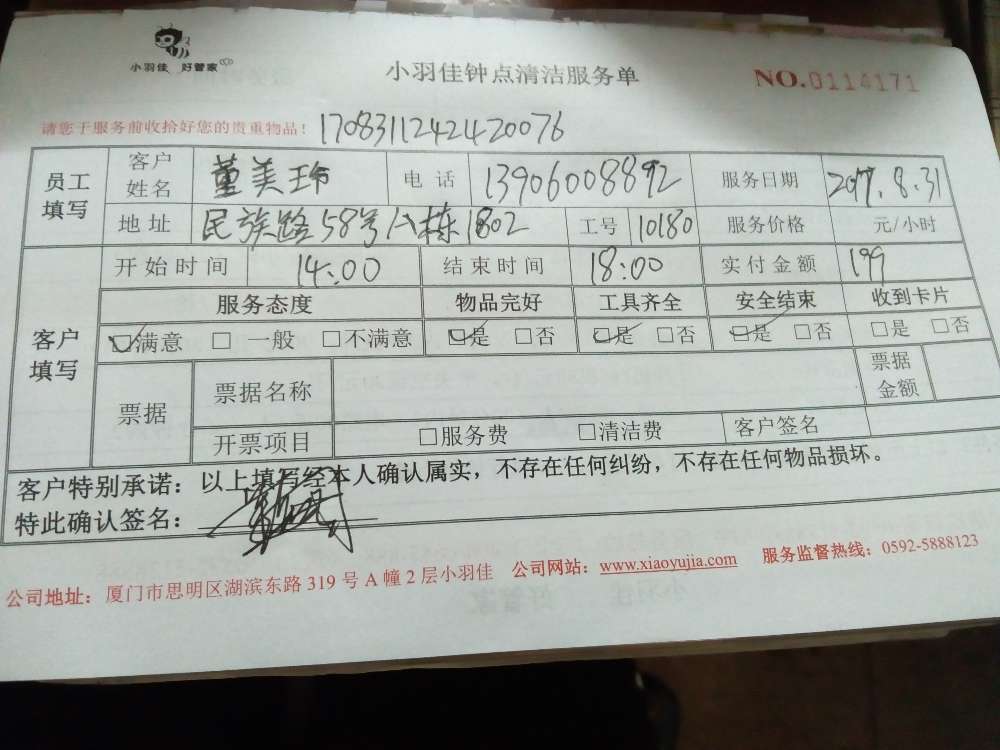 小羽佳 好管家
小羽佳钟点清洁服务单
NO.0114171
请您于服务前收拾好您的贵重物品！ 17083112424420076
员工填写 客户姓名 董美玮 电话 13906008892 服务日期 2017.8.31
地址 民族路58号八栋1802 工号 10180 服务价格 元/小时
客户填写 开始时间 14:00 结束时间 18:00 实付金额 199
服务态度 物品完好 工具齐全 安全结束 收到卡片
☑满意 □一般 □不满意 ☑是 □否 ☑是 □否 ☑是 □否 □是 □否
票据 票据名称 票据金额
开票项目 □服务费 □清洁费 客户签名
客户特别承诺：以上填写经本人确认属实，不存在任何纠纷，不存在任何物品损坏。
特此确认签名：
公司地址：厦门市思明区湖滨东路319号A幢2层小羽佳 公司网站：www.xiaoyujia.com 服务监督热线：0592-5888123